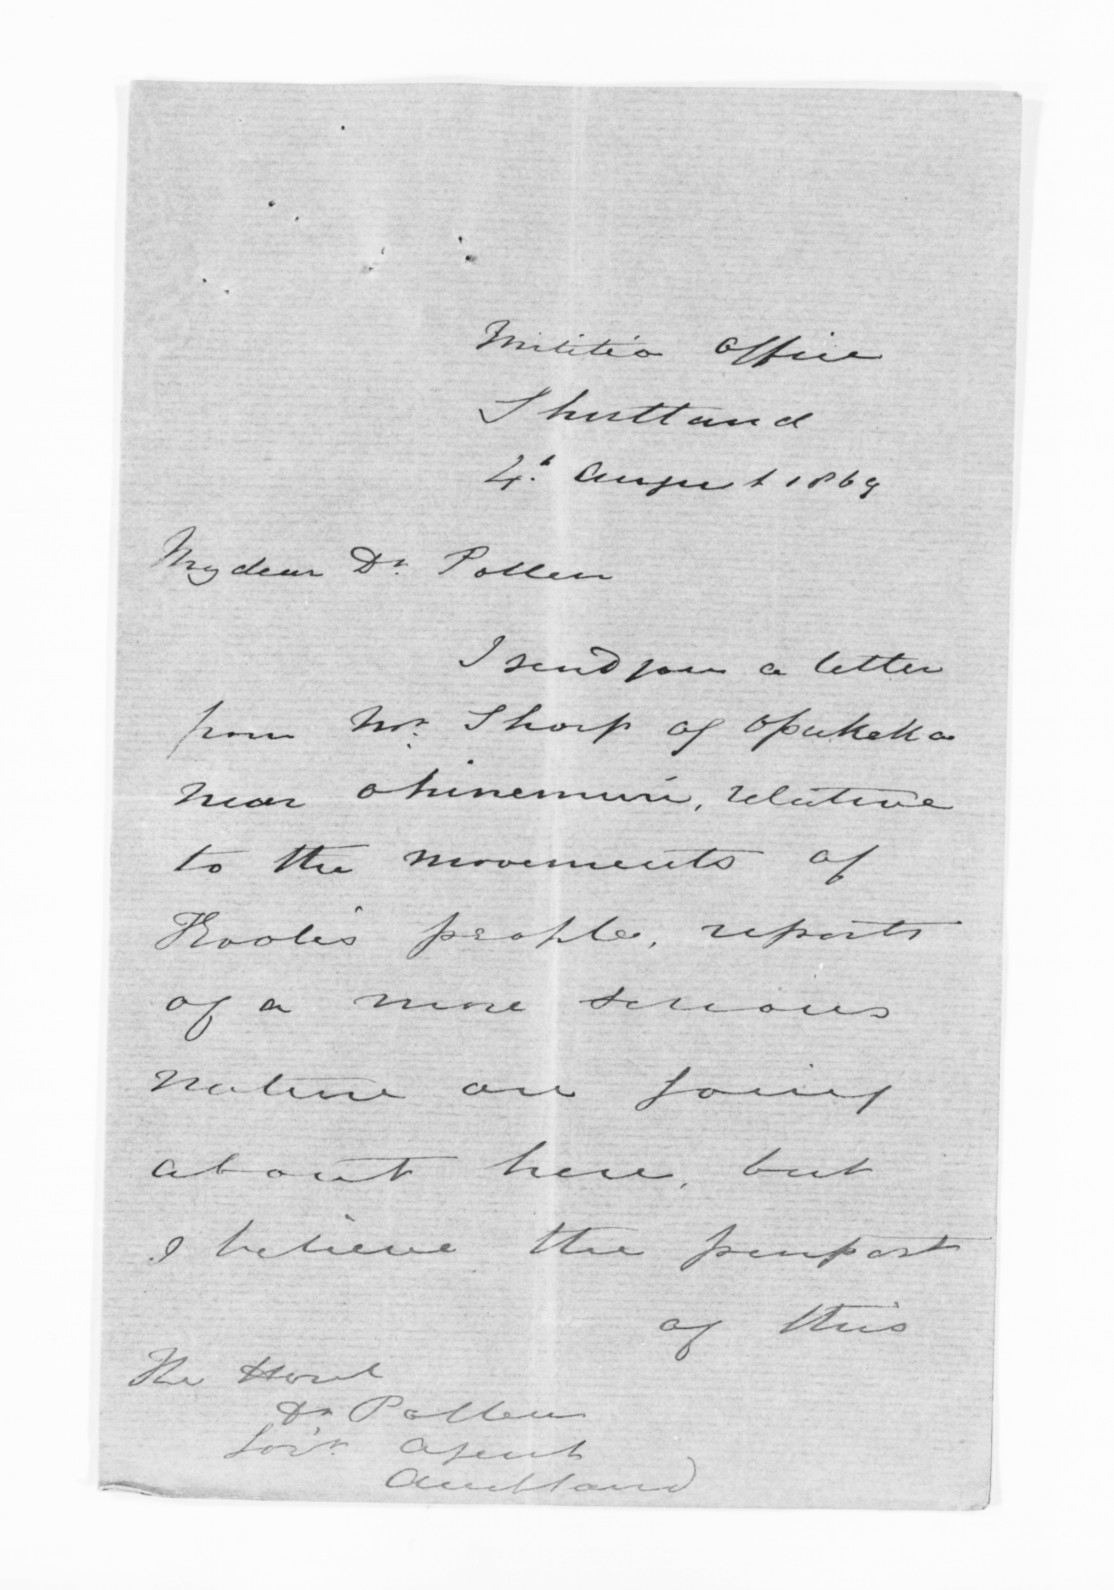 Militia Office
Shortland
4th August 1869
My dear Dr. Pollen
I send you a letter
from Mr. Thorp of Opukeko
near Ohinemuri, relative
to the movements of
Kooti's people, reports
of a more serious
nature are going
about here, but
I believe the purport
of this
The Honl
Dr Pollen
Govt. Agent
Auckland